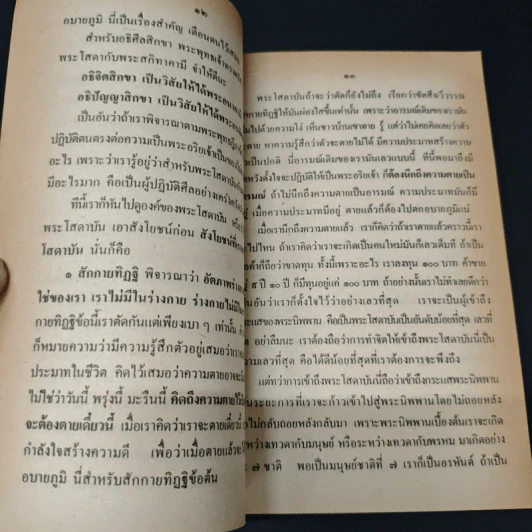 ๑๒
อบายภูมิ นี่เป็นเรื่องสำคัญ เตือนตนไว้เสมอ
สำหรับอธิศีลสิกขา พระพุทธเจ้า
พระโสดากับพระสกิทาคามี จำให้ดีนะ
อธิจิตสิกขา เป็นวิสัยให้ได้พระอนาคามี
อธิปัญญาสิกขา เป็นวิสัยให้ได้พระ
เป็นอันว่าถ้าเราพิจารณาตามพระพุทธ
ปฏิบัติตนตรงต่อความเป็นพระอริยเจ้าเป็นของ
อะไร เพราะว่าเรารู้อยู่ว่าสำหรับพระโสดาบัน
มีอะไรมาก คือเป็นผู้ปฏิบัติศีลอย่างเคร่งครัด
ทีนี้เราก็หันไปดูองค์ของพระโสดาบัน
พระโสดาบัน เอาสังโยชน์ก่อน สังโยชน์ที่
โสดาบัน นั่นก็คือ
๑ สักกายทิฏฐิ พิจารณาว่า อัตภาพร่างกาย
ใช่ของเรา เราไม่มีในร่างกาย ร่างกายไม่มี
กายทิฏฐิข้อนี้เราตัดกันแต่เพียงเบา ๆ เท่านั้น
ก็หมายความว่ามีความรู้สึกตัวอยู่เสมอว่าเรา
ประมาทในชีวิต คิดไว้เสมอว่าความตายอาจจะ
ไม่ใช่ว่าวันนี้ พรุ่งนี้ มะรืนนี้ คิดถึงความตายไว้
จะต้องตายเดี๋ยวนี้ เมื่อเราคิดว่าเราจะตายเดี๋ยวนี้
กำลังใจสร้างความดี เพื่อว่าเมื่อตายแล้วจะ
อบายภูมิ นี่สำหรับสักกายทิฏฐิข้อต้น
๑๓
พระโสดาบันถ้าจะว่าตัดก็ยังไม่ถึง เรียกว่าขัดสีฉวีวรรณ
กายทิฏฐิให้มันผ่องใสขึ้นเท่านั้น เพราะว่าอารมณ์เดิมของเรามัน
ไปด้วยความโง่ เห็นชาวบ้านเขาตาย รู้ แต่ว่าไม่เคยคิดเลยว่าตัว
ตาย หากความรู้สึกว่าตัวจะตายไม่ได้ มีความประมาทสร้างความ
เป็นปกติ นี่อารมณ์เดิมของเรามันเลวแบบนี้ ทีนี้พอมาถึงมี
หวังตั้งใจจะปฏิบัติให้เป็นพระอริยเจ้า ก็ต้องนึกถึงความตายเป็น
อารมณ์ ถ้าไม่นึกถึงความตายเป็นอารมณ์ ความประมาทมันก็มี
เมื่อความประมาทมีอยู่ ตายแล้วก็ต้องไปตกอบายภูมิแน่
เมื่อเรานึกถึงความตายแล้ว เราก็คิดว่าถ้าเราตายแล้วคราวนี้เรา
ไปไหน ถ้าเราคิดว่าเราจะเกิดเป็นคนใหม่มันก็เลวเต็มที ถ้าเป็น
ค้าก็ถือว่าขาดทุน ทั้งนี้เพราะอะไร เราลงทุน ๑๐๐ บาท ค้าขาย
๕ ปี ๑๐ ปี ก็มีทุนอยู่แค่ ๑๐๐ บาท ถ้าอย่างนั้นเราไม่ทำเลยดีกว่า
เป็นอันว่าเราก็ตั้งใจไว้ว่าอย่างเลวที่สุด เราจะเป็นผู้เข้าถึง
กระแสของพระนิพพาน คือเป็นพระโสดาบันเป็นอันดับน้อยที่สุด เลวที่
อย่าลืมนะ เราต้องถือว่าการทำจิตให้เข้าถึงพระโสดาบันนี่
เป็นความเลวที่สุด คือได้ดีน้อยที่สุดที่เราต้องการจะพึงถึง
แต่ทว่าการเข้าถึงพระโสดาบันนี่ถือว่าเข้าถึงกระแสพระนิพพาน
เป็นระยะการที่เราจะก้าวเข้าไปสู่พระนิพพานโดยไม่ถอยหลัง
ไม่กลับถอยหลังกลับมา เพราะพระนิพพานเบื้องต้นเราจะเกิด
ระหว่างเทวดากับมนุษย์ หรือระหว่างเทวดากับพรหม มาเกิดอย่าง
๗ ชาติ พอเป็นมนุษย์ชาติที่ ๗ เราก็เป็นอรหันต์ ถ้าเป็น